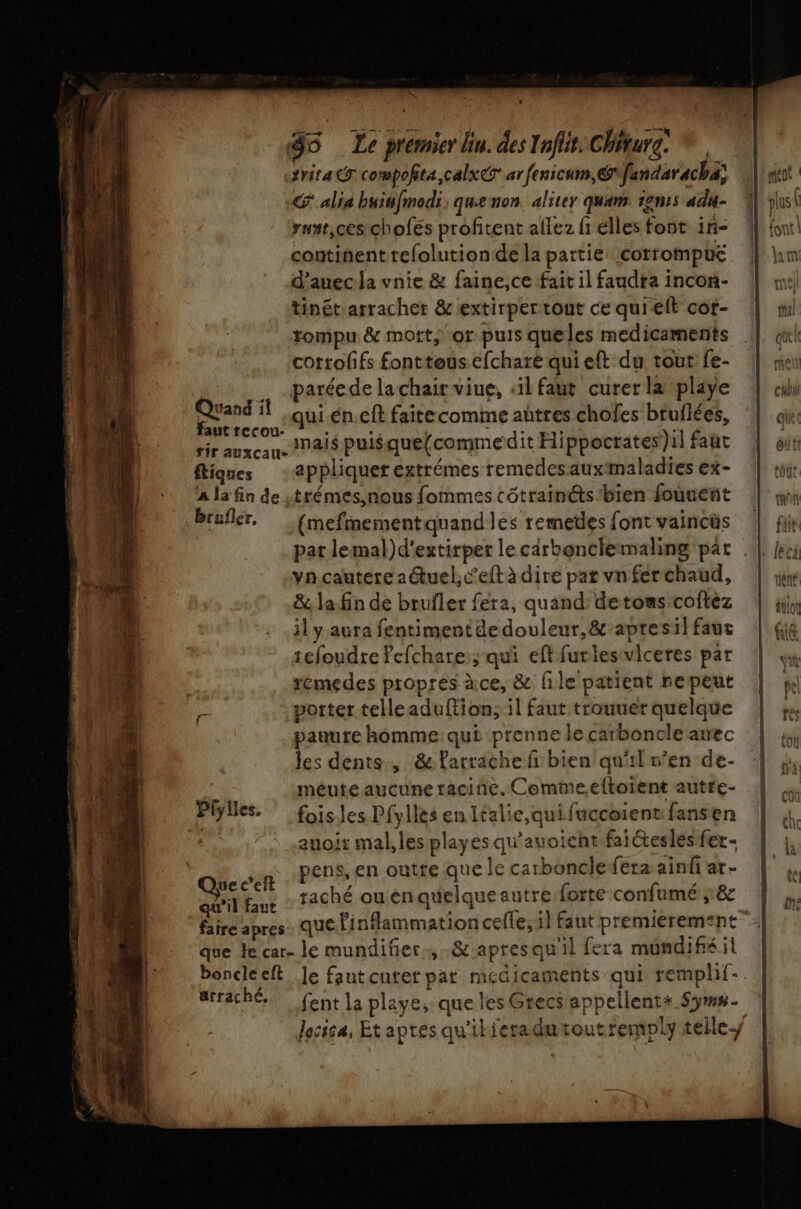 90 Le premier liu. des Instit. Chirurg.
trita & composita, calx & arsenicum, & sandaracha,
& alia huiusmodi, quæ non aliter quam ignis adu-
runt, ces choses profitent assez si elles font in-
continent resolution de la partie corrompuë
d'auec la viue & saine, ce fait il faudra incon-
tinẽt arracher & extirper tout ce qui est cor-
rompu & mort, or puis que les medicaments
corrosifs font tous escharẽ qui est du tout se-
parée de la chair viue, il faut curer la playe
Quand il
qui en est faite comme autres choses bruslées,
faut recou-
mais puis que (comme dit Hippocrates) il faut
rir aux cau-
stiques
appliquer extrémes remedes aux maladies ex-
A la fin de
trémes, nous sommes cõtraincts bien souuent
brusler.
(mesmement quand les remedes sont vaincus
par le mal) d'extirper le carboncle maling par
vn cautere actuel, c'est à dire par vn fer chaud,
& la fin de brusler sera, quand de tous costez
il y aura sentiment de douleur, & apres il faut
resoudre l'eschare, qui est sur les vlceres par
remedes propres à ce, & si le patient ne peut
porter telle adustion, il faut trouuer quelque
pauure homme qui prenne le carboncle auec
les dents, & l'arrache si bien qu'il n'en de-
meure aucune racine. Comme estoient autre-
Psylles.
fois les Psylles en Italie, qui succoient sans en
auoir mal, les playes qu'auoient faictes les ser-
pens, en outre que le carboncle sera ainsi ar-
Que c'est
raché ou en quelque autre sorte consumé, &
qu'il faut
faire apres
que l'inflammation cesse, il faut premierement
que le car-
le mundifier, & apres qu'il sera mundifié il
boncle est
le faut curer par medicaments qui remplis-
arraché.
sent la playe, que les Grecs appellent*
Et apres qu'il sera du tout remply telle-